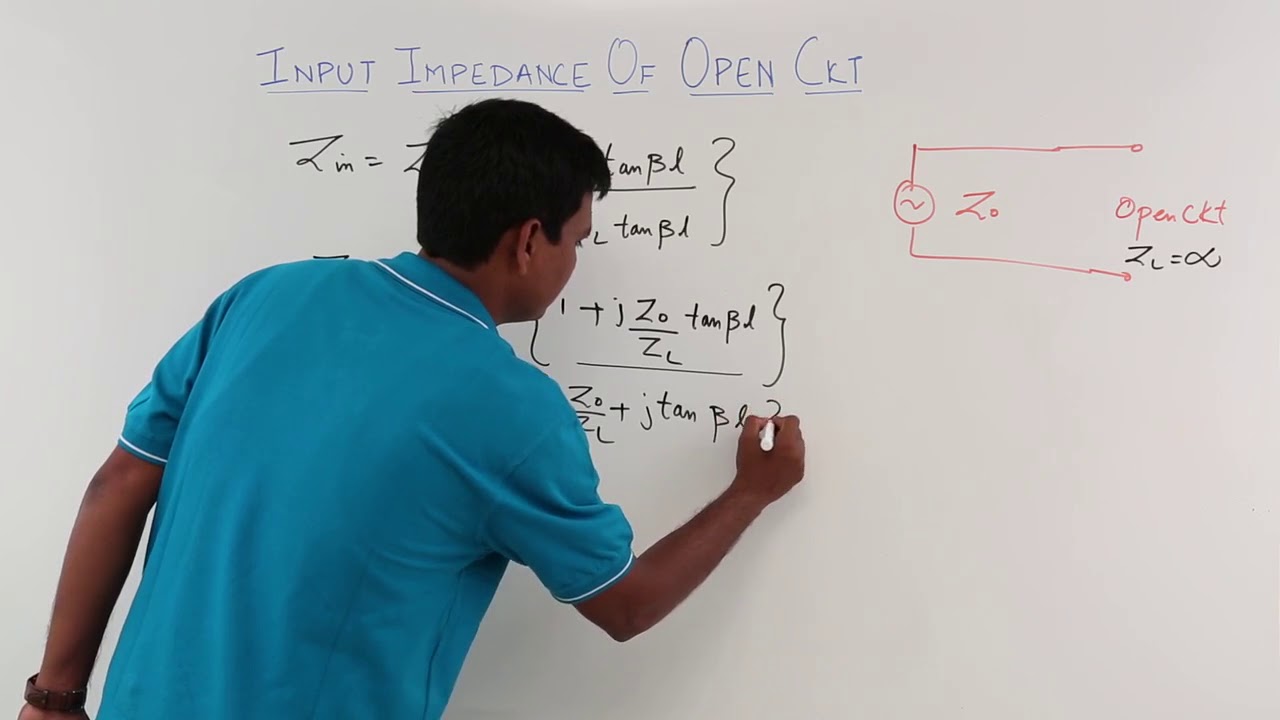 INPUT IMPEDANCE OF OPEN CKT
Zin = Z tanβl }
L tanβl
{ 1 + j Z0/ZL tanβl }
Z0/ZL + j tan βl }
Z0
Open Ckt
ZL = ∝